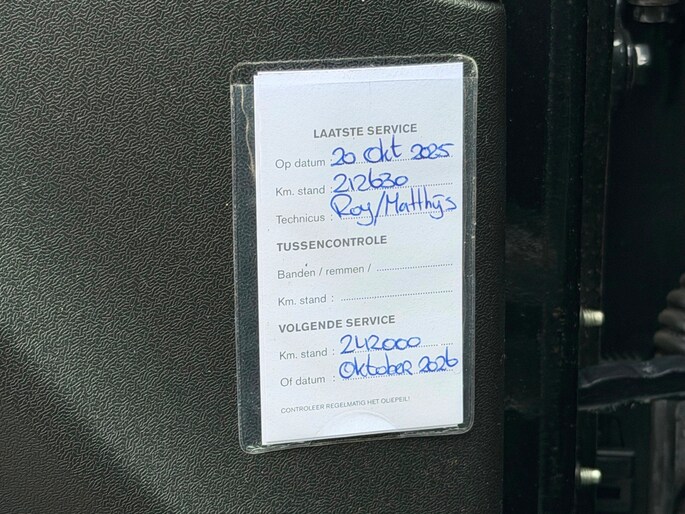 LAATSTE SERVICE
Op datum 20 okt 2025
Km. stand : 212630
Technicus : Roy/Matthijs
TUSSENCONTROLE
Banden / remmen /
Km. stand :
VOLGENDE SERVICE
Km. stand : 242000
Of datum : Oktober 2026
CONTROLEER REGELMATIG HET OLIEPEIL!